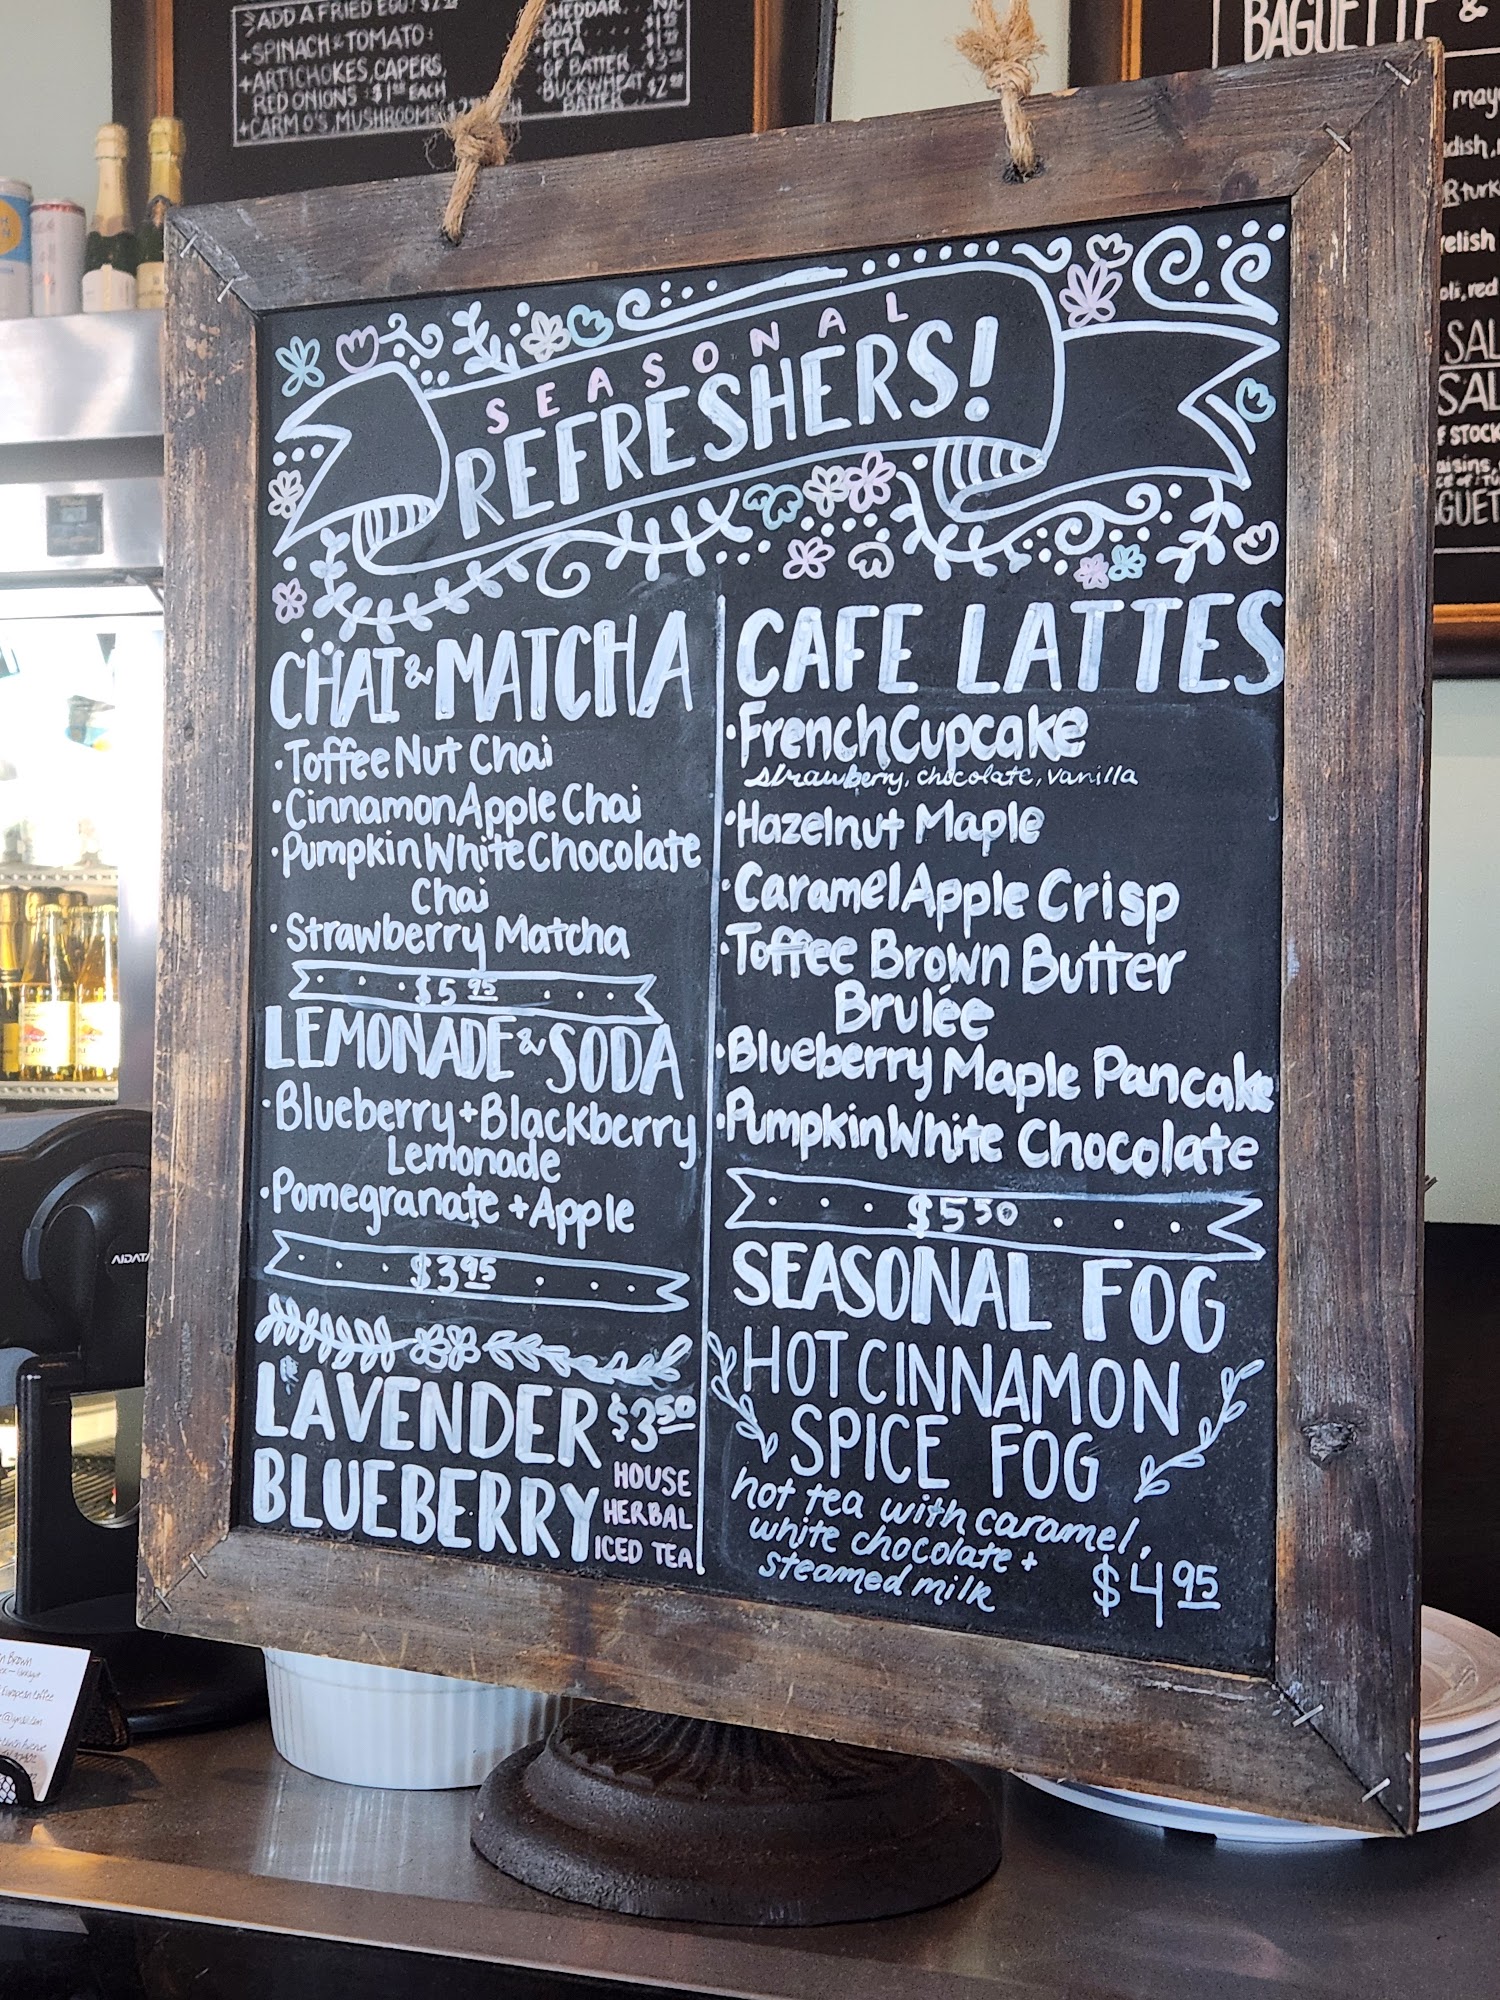 ADD A FRIED EGG! $2
+SPINACH & TOMATO:
+ARTICHOKES, CAPERS,
RED ONIONS : $1 EACH
+CARM O'S, MUSHROOMS
CHEDDAR
GOAT
FETA
GF BATTER $3
BUCKWHEAT $2
BATTER
BAGUETTE &
SEASONAL
REFRESHERS!
CHAI & MATCHA
•Toffee Nut Chai
•Cinnamon Apple Chai
•Pumpkin White Chocolate
Chai
•Strawberry Matcha
$5 95
LEMONADE & SODA
•Blueberry + Blackberry
Lemonade
•Pomegranate + Apple
$3 95
LAVENDER
BLUEBERRY
$3 50
HOUSE
HERBAL
ICED TEA
CAFE LATTES
•French Cupcake
strawberry, chocolate, vanilla
•Hazelnut Maple
•Caramel Apple Crisp
•Toffee Brown Butter
Brulée
•Blueberry Maple Pancake
•Pumpkin White Chocolate
$5 50
SEASONAL FOG
HOT CINNAMON
SPICE FOG
hot tea with caramel,
white chocolate +
steamed milk
$4 95